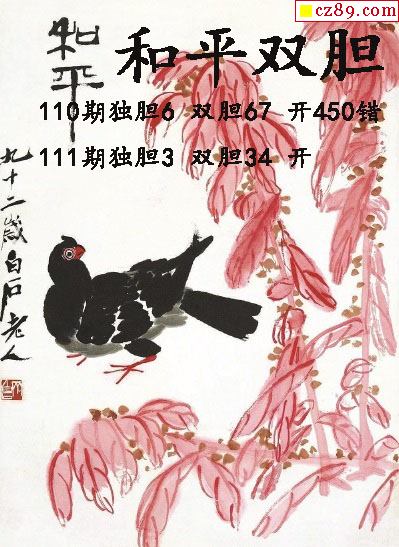 cz89.com
和平双胆
110期独胆6 双胆67 开450错
111期独胆3 双胆34 开
和平
九十二岁白石老人